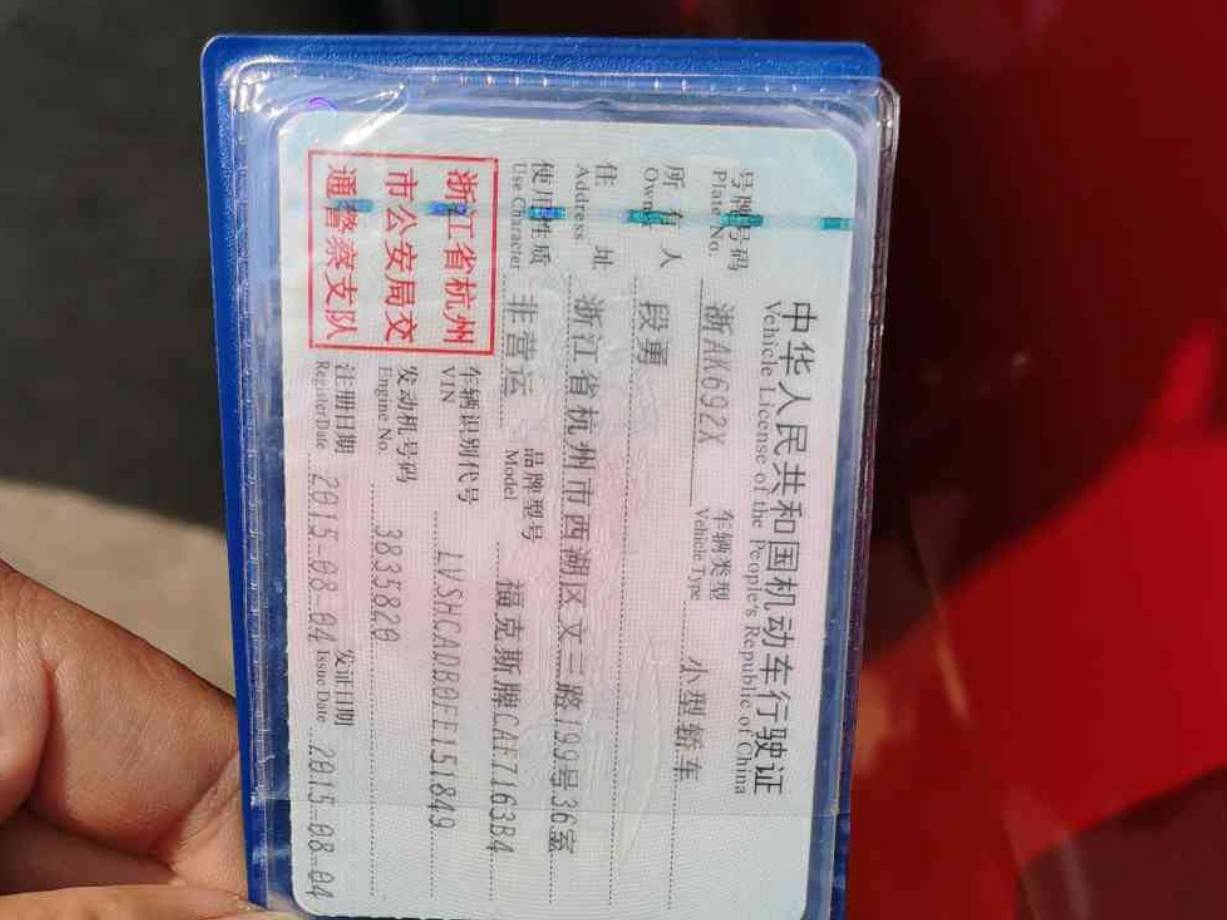 中华人民共和国机动车行驶证
Vehicle License of the People's Republic of China
号牌号码 浙AK692X 车辆类型 小型轿车
Plate No. Vehicle Type
所有人 段勇
Owner
住址 浙江省杭州市西湖区文三路199号36室
Address
使用性质 非营运 品牌型号 福克斯牌CAF7163B4
Use Character Model
浙江省杭州
市公安局交
通警察支队
车辆识别代号 LVSHCADB0FE151849
VIN
发动机号码 3835820
Engine No.
注册日期 2015-08-04 发证日期 2015-08-04
Register Date Issue Date